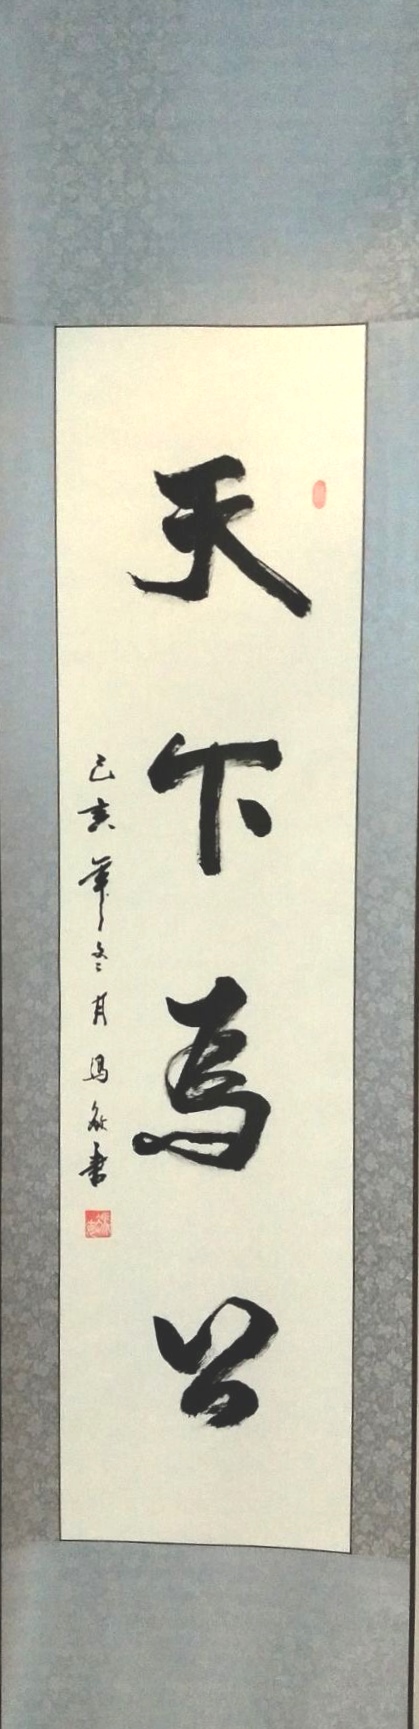 天下為公
己亥年冬月馮敏書